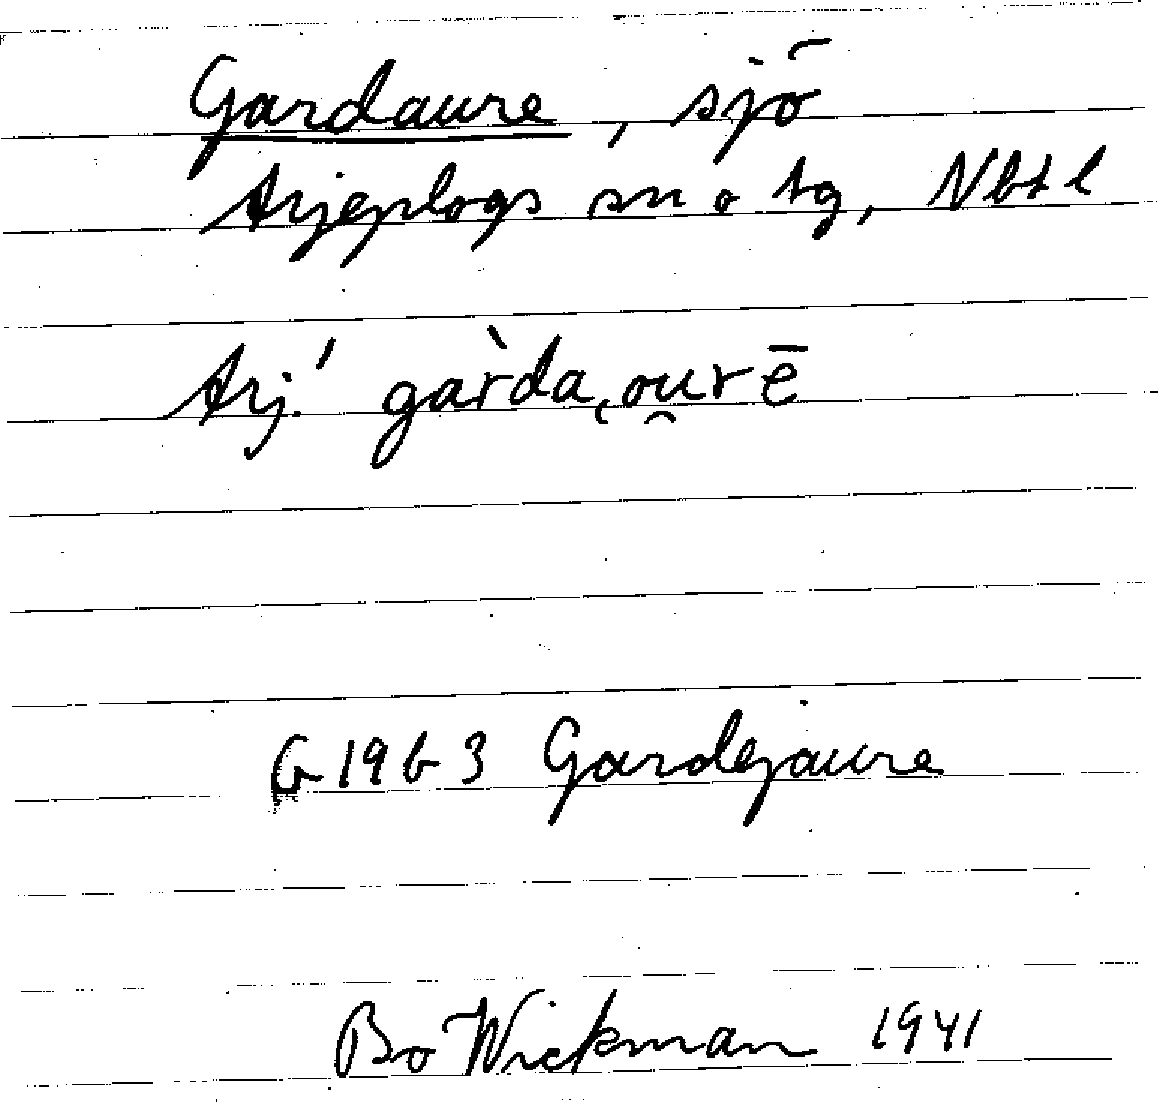 Gardaure, sjö
Arjeplogs sn o tg, Nbtl
Arj.' gàrda͔ou̯rē
G 1963 Gardejaure
Bo Wickman 1941